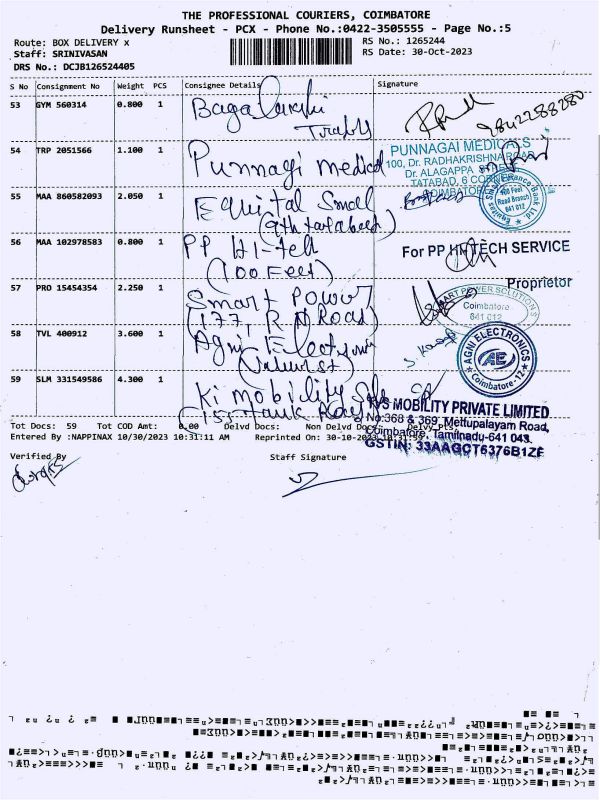 THE PROFESSIONAL COURIERS, COIMBATORE
Delivery Runsheet - PCX - Phone No.:0422-3505555 - Page No.:5
Route: BOX DELIVERY x
RS No.: 1265244
Staff: SRINIVASAN
RS Date: 30-Oct-2023
DRS No.: DCJB126524405
S No Consignment No Weight PCS Consignee Details Signature
53 GYM 560314 0.800 1
9842288280
54 TRP 2051566 1.100 1 Punnagi medical
PUNNAGAI MEDICALS
100, Dr. RADHAKRISHNA ROAD
Dr. ALAGAPPA
TATABAD, 6 CORNER
COIMBATORE
55 MAA 860582093 2.050 1 Equital Small
(9th tatabad)
100 Feet
Road Branch
641 012
56 MAA 102978583 0.800 1 PP Hi-Tech
(100 Feet)
For PP HI-TECH SERVICE
Proprietor
57 PRO 15454354 2.250 1 Smart Power
(177, R N Road)
SMART POWER SOLUTIONS
Coimbatore
641 012
58 TVL 400912 3.600 1 Agni Electronic
AGNI ELECTRONICS
AE
Coimbatore-12
59 SLM 331549586 4.300 1 Ki mobility
MOBILITY PRIVATE LIMITED
No:368 & 369, Mettupalayam Road,
Coimbatore, Tamilnadu-641 043.
GSTIN: 33AAGCT6376B1ZE
Tot Docs: 59 Tot COD Amt: 0.00 Delvd Docs: Non Delvd Docs: Delvy Pts:
Entered By :NAPPINAX 10/30/2023 10:31:11 AM Reprinted On: 30-10-2023 10:31:59
Verified By
Staff Signature